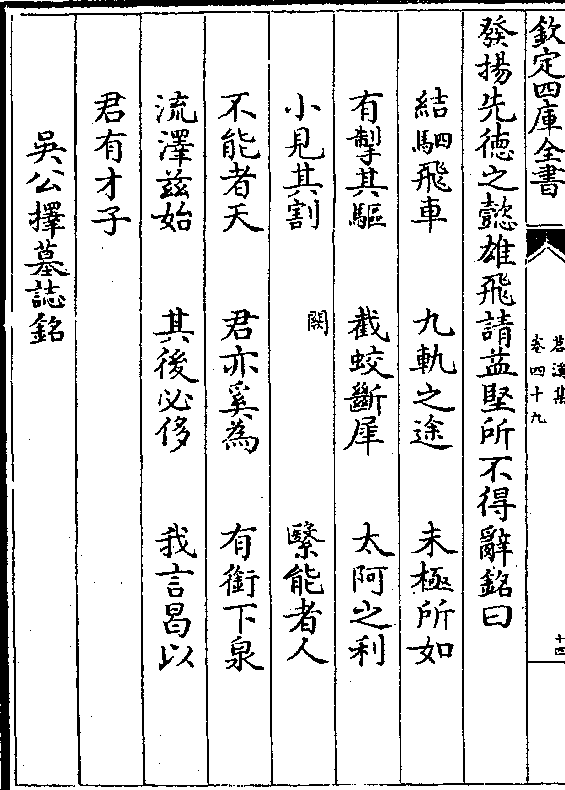 欽定四庫全書
苕溪集
卷四十九
十四
發揚先德之懿雄飛請益堅所不得辭銘曰
結駟飛車 九軌之途 未極所如
有掣其驅 截蛟斷犀 太阿之利
小見其割 闕 繄能者人
不能者天 君亦奚為 有銜下泉
流澤兹始 其後必侈 我言曷以
君有才子
吳公擇墓誌銘